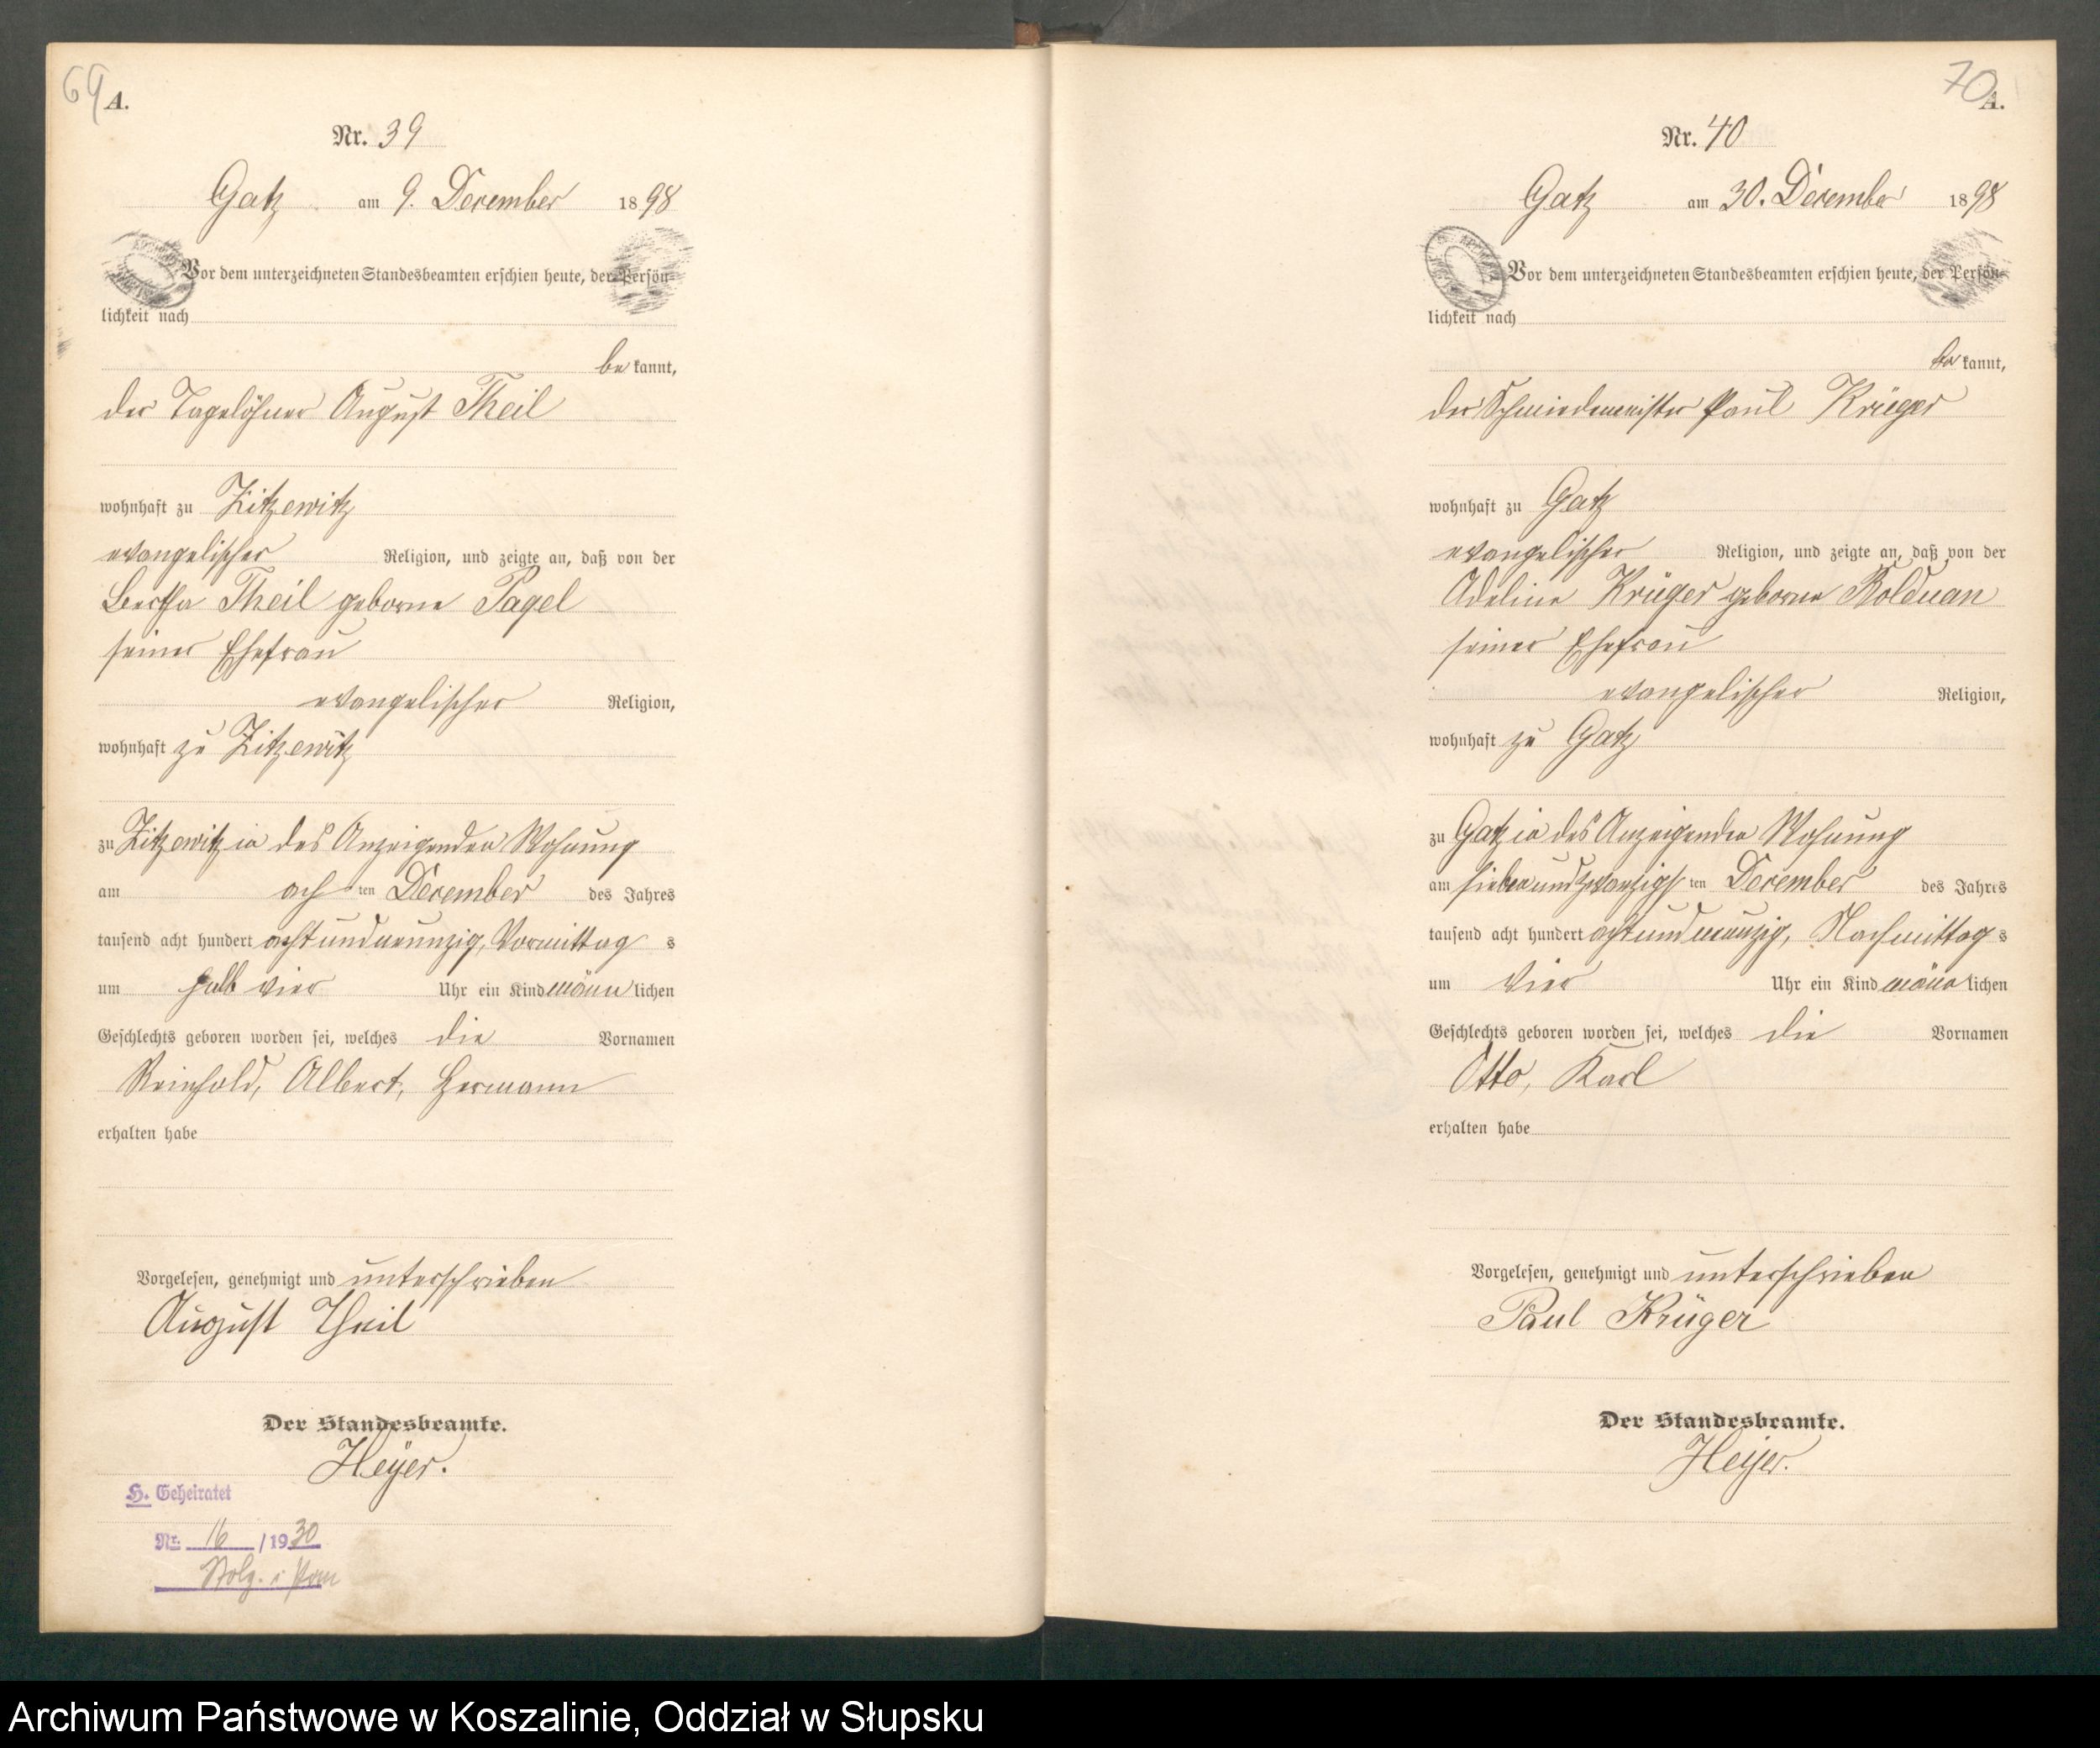 69
A.
Nr. 39
Gatz am 9. December 1898
Vor dem unterzeichneten Standesbeamten erschien heute, der Persön-
lichkeit nach
be kannt,
der Tagelöhner August Theil
wohnhaft zu Zitzewitz
evangelischer Religion, und zeigte an, daß von der
Bertha Theil geborne Pagel
seiner Ehefrau
evangelischer Religion,
wohnhaft zu Zitzewitz
zu Zitzewitz in des Anzeigenden Wohnung
am ach ten December des Jahres
tausend acht hundert achtundneunzig, Vormittag s
um halb vier Uhr ein Kind männ lichen
Geschlechts geboren worden sei, welches die Vornamen
Reinhold, Albert, Hermann
erhalten habe
Vorgelesen, genehmigt und unterschrieben
August Theil
Der Standesbeamte.
Heyer.
H. Geheiratet
Nr. 16 /1930
Stolp i Pom
70
A.
Nr. 40
Gatz am 30. December 1898
Vor dem unterzeichneten Standesbeamten erschien heute, der Persön-
lichkeit nach
be kannt,
der Schmiedemeister Paul Krüger
wohnhaft zu Gatz
evangelischer Religion, und zeigte an, daß von der
Adeline Krüger geborne Kolduan
seiner Ehefrau
evangelischer Religion,
wohnhaft zu Gatz
zu Gatz in des Anzeigenden Wohnung
am siebenundzwanzigs ten December des Jahres
tausend acht hundert achtundneunzig, Nachmittag s
um vier Uhr ein Kind männ lichen
Geschlechts geboren worden sei, welches die Vornamen
Otto, Karl
erhalten habe
Vorgelesen, genehmigt und unterschrieben
Paul Krüger
Der Standesbeamte.
Heyer.
Archiwum Państwowe w Koszalinie, Oddział w Słupsku